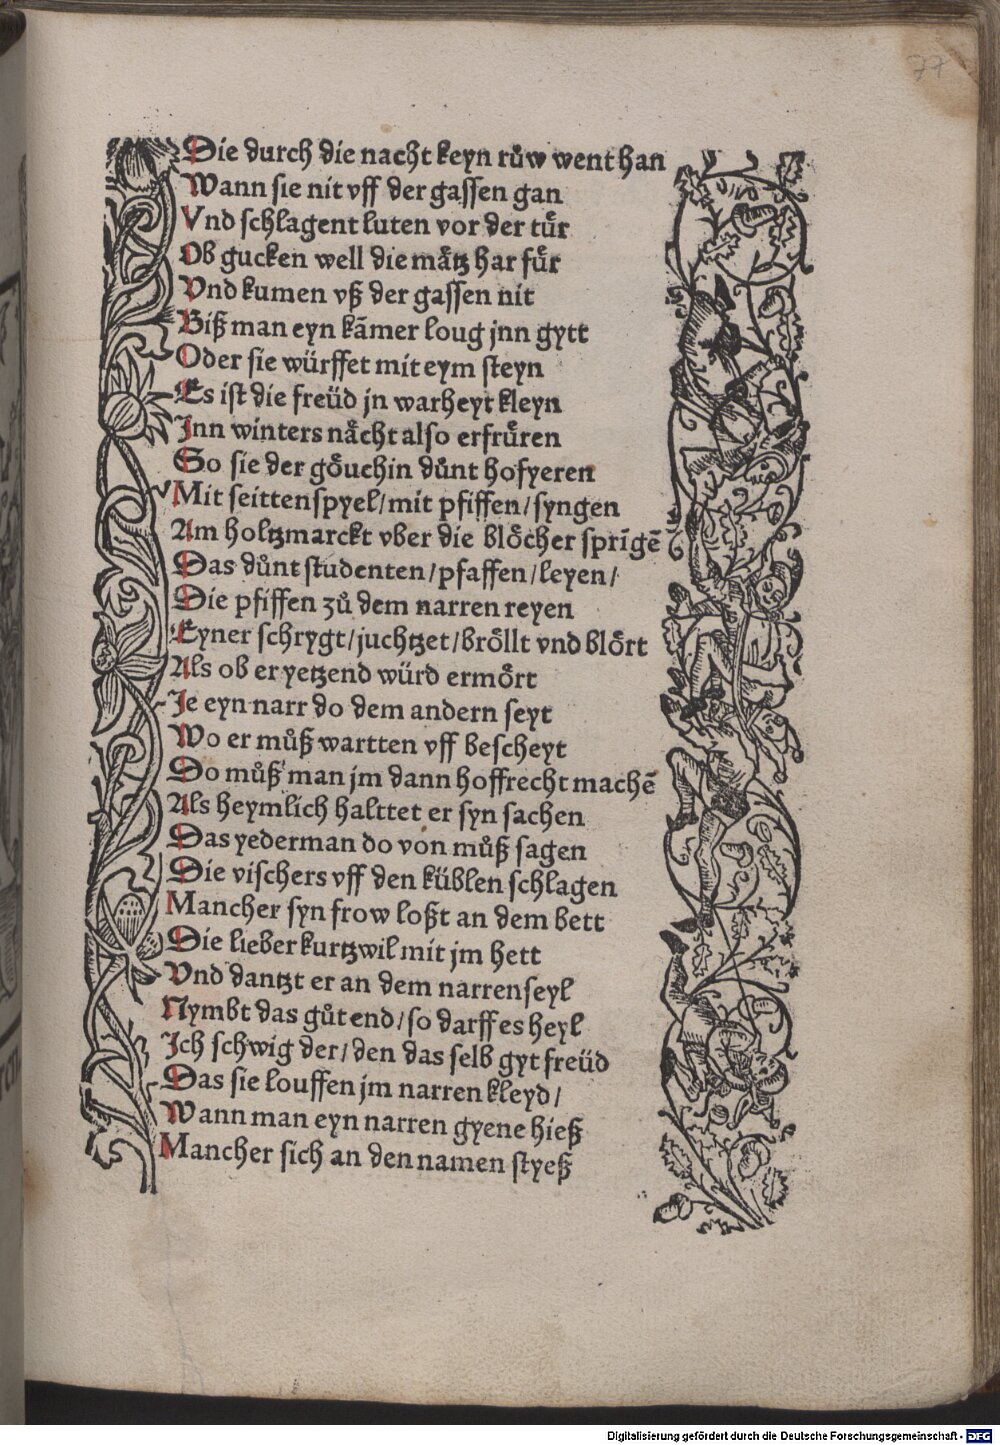 77
Die durch die nacht keyn růw went han
Wann sie nit vff der gassen gan
Vnd schlagent luten vor der tuͤr
Ob gucken well die maͤtz har fuͤr
Vnd kumen vß der gassen nit
Biß man eyn kāmer loug jnn gytt
Oder sie würffet mit eym steyn
Es ist die freüd jn warheyt kleyn
Jnn winters naͤcht also erfruͤren
So sie der goͤuchin důnt hofyeren
Mit seittenspyel/mit pfiffen/syngen
Am holtzmarckt vber die bloͤcher sprīgē
Das důnt studenten/pfaffen/leyen/
Die pfiffen zů dem narren reyen
Eyner schrygt/juchtzet/broͤllt vnd bloͤrt
Als ob er yetzend würd ermoͤrt
Je eyn narr do dem andern seyt
Wo er můß wartten vff bescheyt
Do můß man jm dann hoffrecht machē
Als heymlich halttet er syn sachen
Das yederman do von můß sagen
Die vischers vff den küblen schlagen
Mancher syn frow loßt an dem bett
Die lieber kurtzwil mit jm hett
Vnd dantzt er an dem narrenseyl
Nymbt das gůt end/so darff es heyl
Ich schwig der/den das selb gyt freüd
Das sie louffen jm narren kleyd/
Wann man eyn narren gyene hieß
Mancher sich an den namen styeß
Digitalisierung gefördert durch die Deutsche Forschungsgemeinschaft - DFG